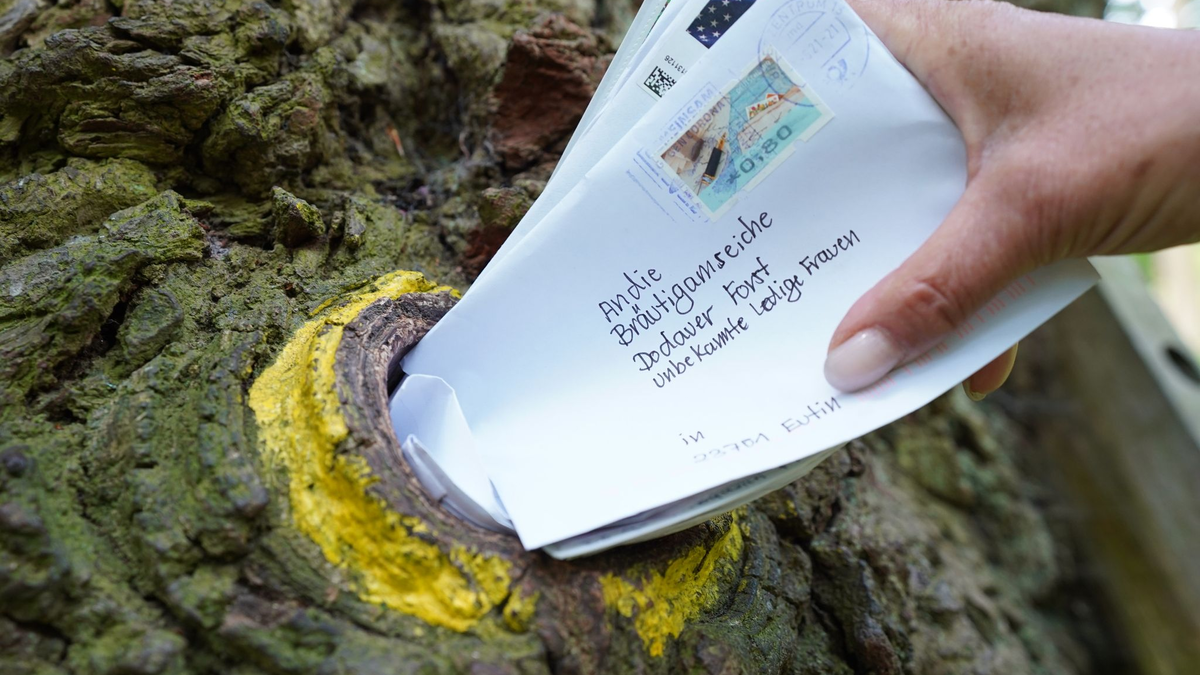 0,80
An die
Bräutigamseiche
Dodauer Forst
unbekannte Ledige Frauen
in
23701 Eutin